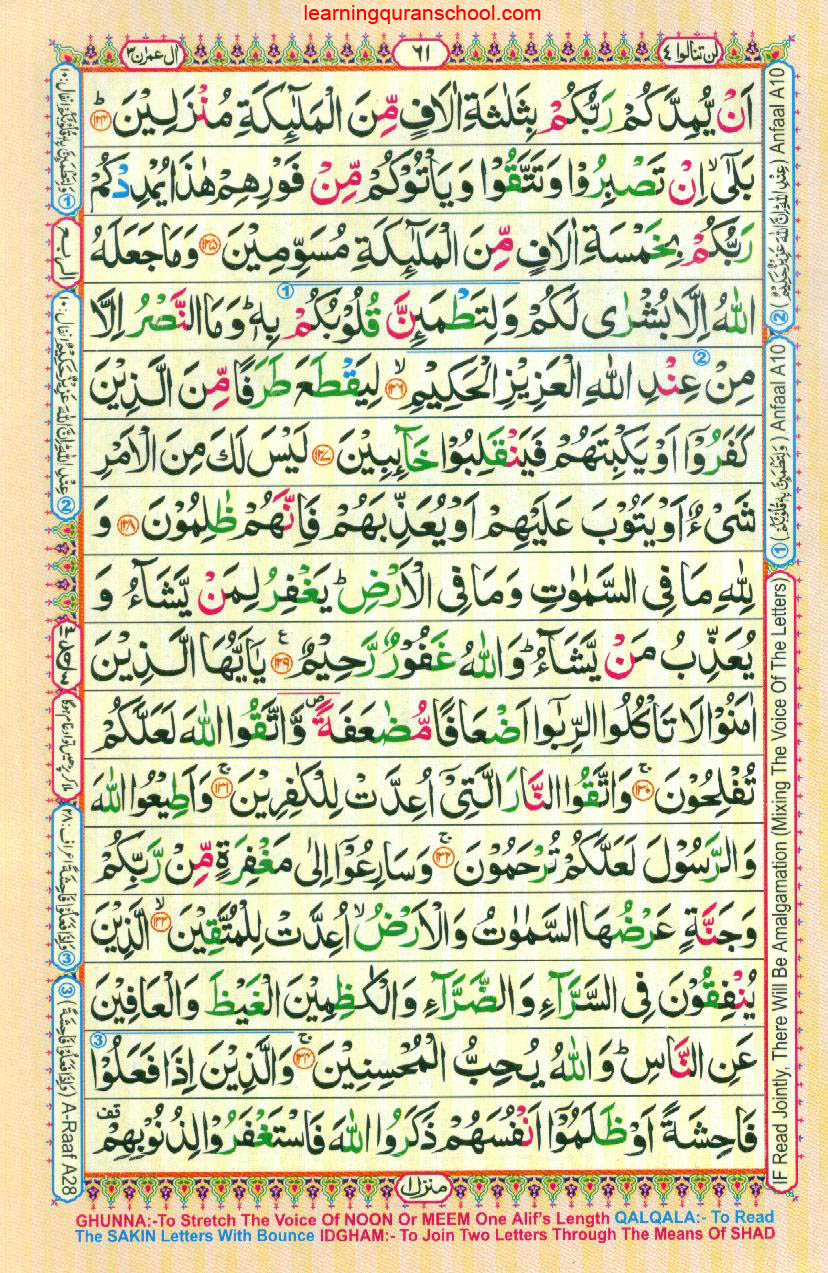 learningquranschool.com
لن تنالوا ٤
٦١
ال عمرٰن ٣
اَنْ يُّمِدَّكُمْ رَبُّكُمْ بِثَلٰثَةِ اٰلَافٍ مِّنَ الْمَلٰٓئِكَةِ مُنْزَلِيْنَ ؕ ﴿۱۲۴﴾
بَلٰٓى ۙ اِنْ تَصْبِرُوْا وَتَتَّقُوْا وَيَاْتُوْكُمْ مِّنْ فَوْرِهِمْ هٰذَا يُمْدِدْكُمْ
رَبُّكُمْ بِخَمْسَةِ اٰلَافٍ مِّنَ الْمَلٰٓئِكَةِ مُسَوِّمِيْنَ ﴿۱۲۵﴾ وَمَا جَعَلَهُ
اللّٰهُ اِلَّا بُشْرٰى لَكُمْ وَلِتَطْمَئِنَّ قُلُوْبُكُمْ بِهٖ ؕ وَمَا النَّصْرُ اِلَّا
مِنْ عِنْدِ اللّٰهِ الْعَزِيْزِ الْحَكِيْمِ ۙ ﴿۱۲۶﴾ لِيَقْطَعَ طَرَفًا مِّنَ الَّذِيْنَ
كَفَرُوْۤا اَوْ يَكْبِتَهُمْ فَيَنْقَلِبُوْا خَآئِبِيْنَ ﴿۱۲۷﴾ لَيْسَ لَكَ مِنَ الْاَمْرِ
شَىْءٌ اَوْ يَتُوْبَ عَلَيْهِمْ اَوْ يُعَذِّبَهُمْ فَاِنَّهُمْ ظٰلِمُوْنَ ﴿۱۲۸﴾ وَ
لِلّٰهِ مَا فِى السَّمٰوٰتِ وَمَا فِى الْاَرْضِ ؕ يَغْفِرُ لِمَنْ يَّشَآءُ وَ
يُعَذِّبُ مَنْ يَّشَآءُ ؕ وَاللّٰهُ غَفُوْرٌ رَّحِيْمٌ ﴿۱۲۹﴾ ع يٰۤاَيُّهَا الَّذِيْنَ
اٰمَنُوْا لَا تَاْكُلُوا الرِّبٰٓوا اَضْعَافًا مُّضٰعَفَةً ۪ وَّاتَّقُوا اللّٰهَ لَعَلَّكُمْ
تُفْلِحُوْنَ ۚ ﴿۱۳۰﴾ وَاتَّقُوا النَّارَ الَّتِىْۤ اُعِدَّتْ لِلْكٰفِرِيْنَ ۚ ﴿۱۳۱﴾ وَاَطِيْعُوا اللّٰهَ
وَالرَّسُوْلَ لَعَلَّكُمْ تُرْحَمُوْنَ ۚ ﴿۱۳۲﴾ وَسَارِعُوْۤا اِلٰى مَغْفِرَةٍ مِّنْ رَّبِّكُمْ
وَجَنَّةٍ عَرْضُهَا السَّمٰوٰتُ وَالْاَرْضُ ۙ اُعِدَّتْ لِلْمُتَّقِيْنَ ۙ ﴿۱۳۳﴾ الَّذِيْنَ
يُنْفِقُوْنَ فِى السَّرَّآءِ وَالضَّرَّآءِ وَالْكٰظِمِيْنَ الْغَيْظَ وَالْعَافِيْنَ
عَنِ النَّاسِ ؕ وَاللّٰهُ يُحِبُّ الْمُحْسِنِيْنَ ۚ ﴿۱۳۴﴾ وَالَّذِيْنَ اِذَا فَعَلُوْا
فَاحِشَةً اَوْ ظَلَمُوْۤا اَنْفُسَهُمْ ذَكَرُوا اللّٰهَ فَاسْتَغْفَرُوْا لِذُنُوْبِهِمْ قف
① ② ③
② (عِنْدِ اللّٰهِ اِنَّ اللّٰهَ عَزِيْزٌ حَكِيْمٌ) Anfaal A10
① (وَلِتَطْمَئِنَّ بِهٖ قُلُوْبُكُمْ) Anfaal A10
IF Read Jointly, There Will Be Amalgamation (Mixing The Voice Of The Letters)
① وَلِتَطْمَئِنَّ بِهٖ قُلُوْبُكُمْ انفال:١٠
② عِنْدِ اللّٰهِ اِنَّ اللّٰهَ عَزِيْزٌ حَكِيْمٌ انفال:١٠
ملا کر پڑھیں تو ادغام ہوگا
③ وَاِذَا فَعَلُوْا فَاحِشَةً اعراف:٢٨
③ (وَاِذَا فَعَلُوْا فَاحِشَةً) A-Raaf A28
منزل ١
GHUNNA:-To Stretch The Voice Of NOON Or MEEM One Alif's Length QALQALA:- To Read
The SAKIN Letters With Bounce IDGHAM:- To Join Two Letters Through The Means Of SHAD